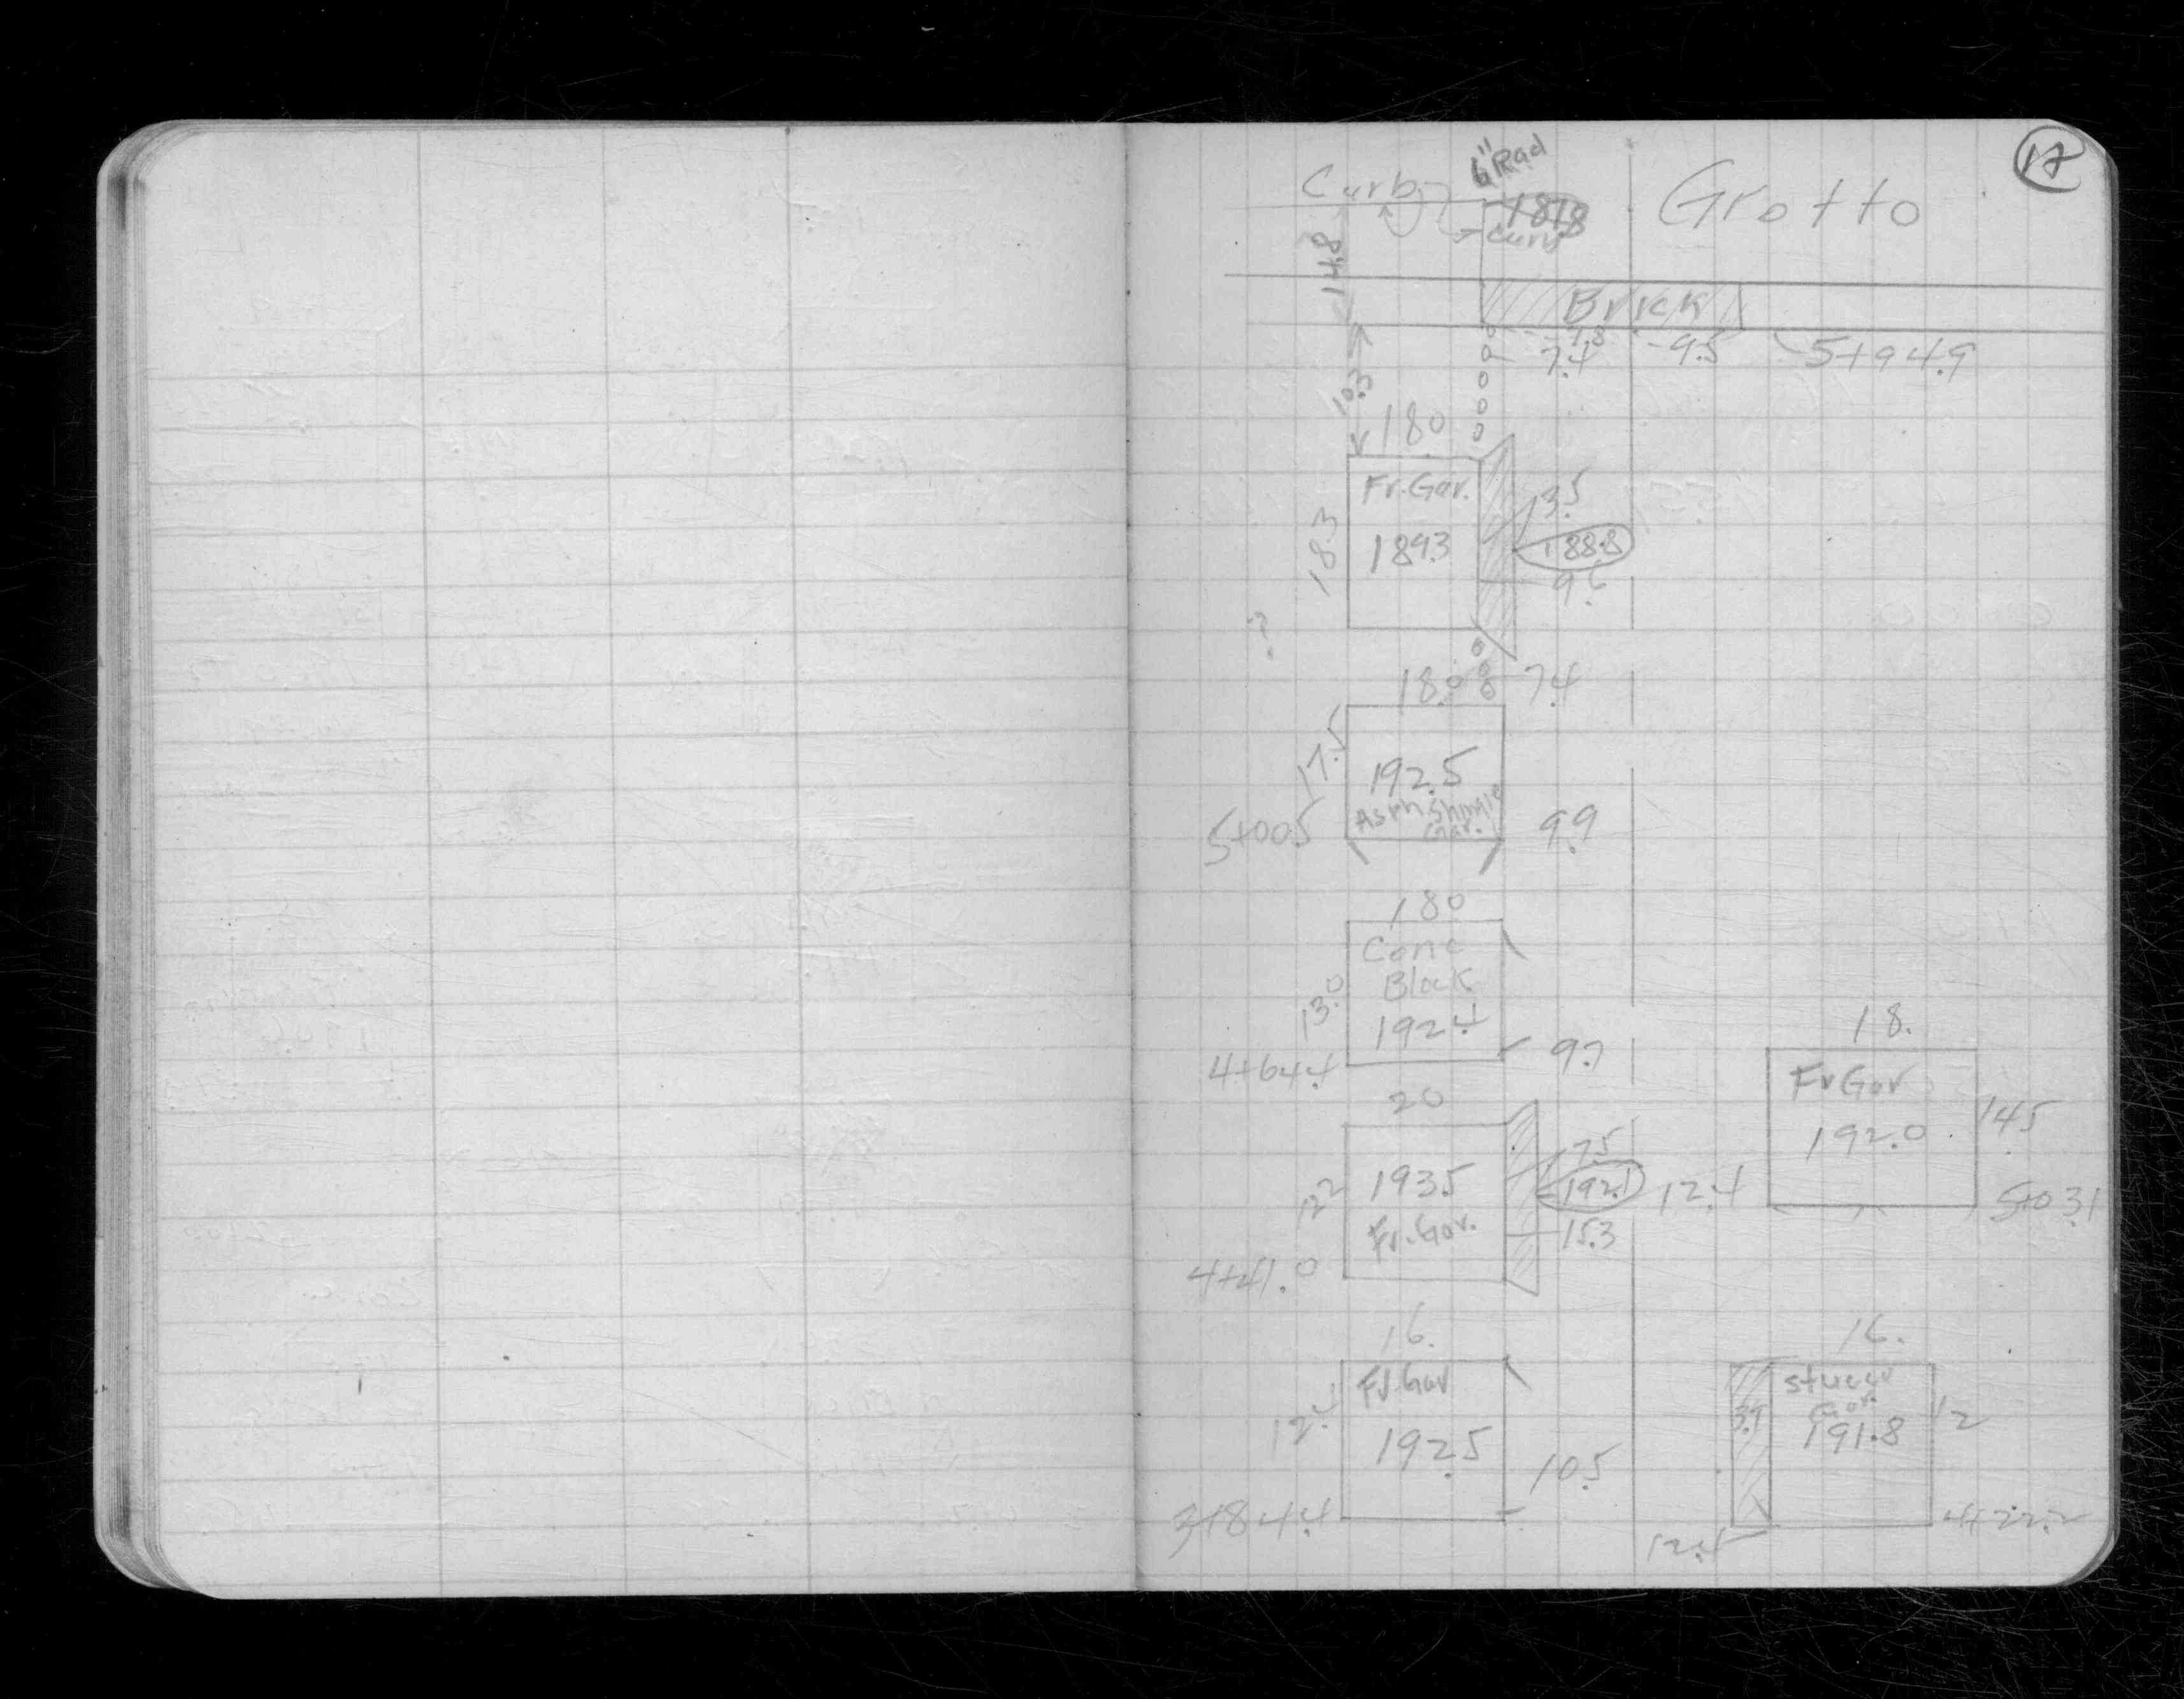 17
6" Rad
Curb
181.8
Curb
Grotto
14.8
Brick
7.4
9.5
5+94.9
10.3
18.0
Fr. Gar.
3.5
18.3
189.3
188.8
9.6
?
18.0
7.4
17.5
192.5
Asph Shingle
Gar.
5+00.5
9.9
18.0
Conc
Block
13.0
192.4
4+64.4
9.7
18.
Fr Gar
192.0
14.5
20
7.5
193.5
192.1
12.4
5+03.1
12.2
Fr. Gar.
15.3
4+41.0
16.
16.
Fr. Gar
Stucco
Gar.
12.4
3.9
12
192.5
191.8
10.5
3+84.4
4+22.2